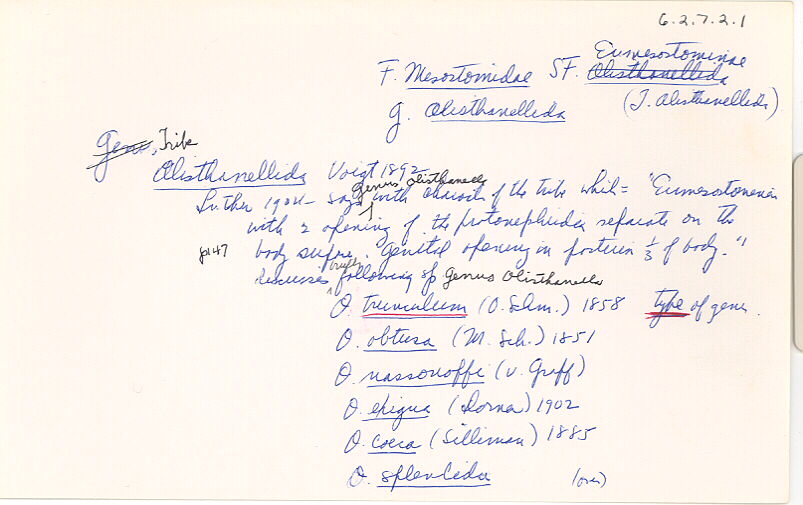 6.2.7.2.1
Eumesostominae
F. Mesostomidae SF. Olisthanellida
g. Olisthanellida (T. Olisthanellida)
Genus, Tribe
Olisthanellida Voigt 1892
Genus Olisthanella
Luther 1904 - says with characts of the tribe which = "Eumesostomeniae
with 2 opening of the protonephridia separate on the
p147 body surface. Genital opening in posterior 1/3 of body."
discusses briefly following sp Genus Olisthanella
O. trunculum (O. Schm.) 1858 type of genus.
O. obtusa (M. Sch.) 1851
O. nassonoffi (v. Graff)
O. exigua (Dorner) 1902
O. coeca (Silliman) 1885
O. splendida (over)